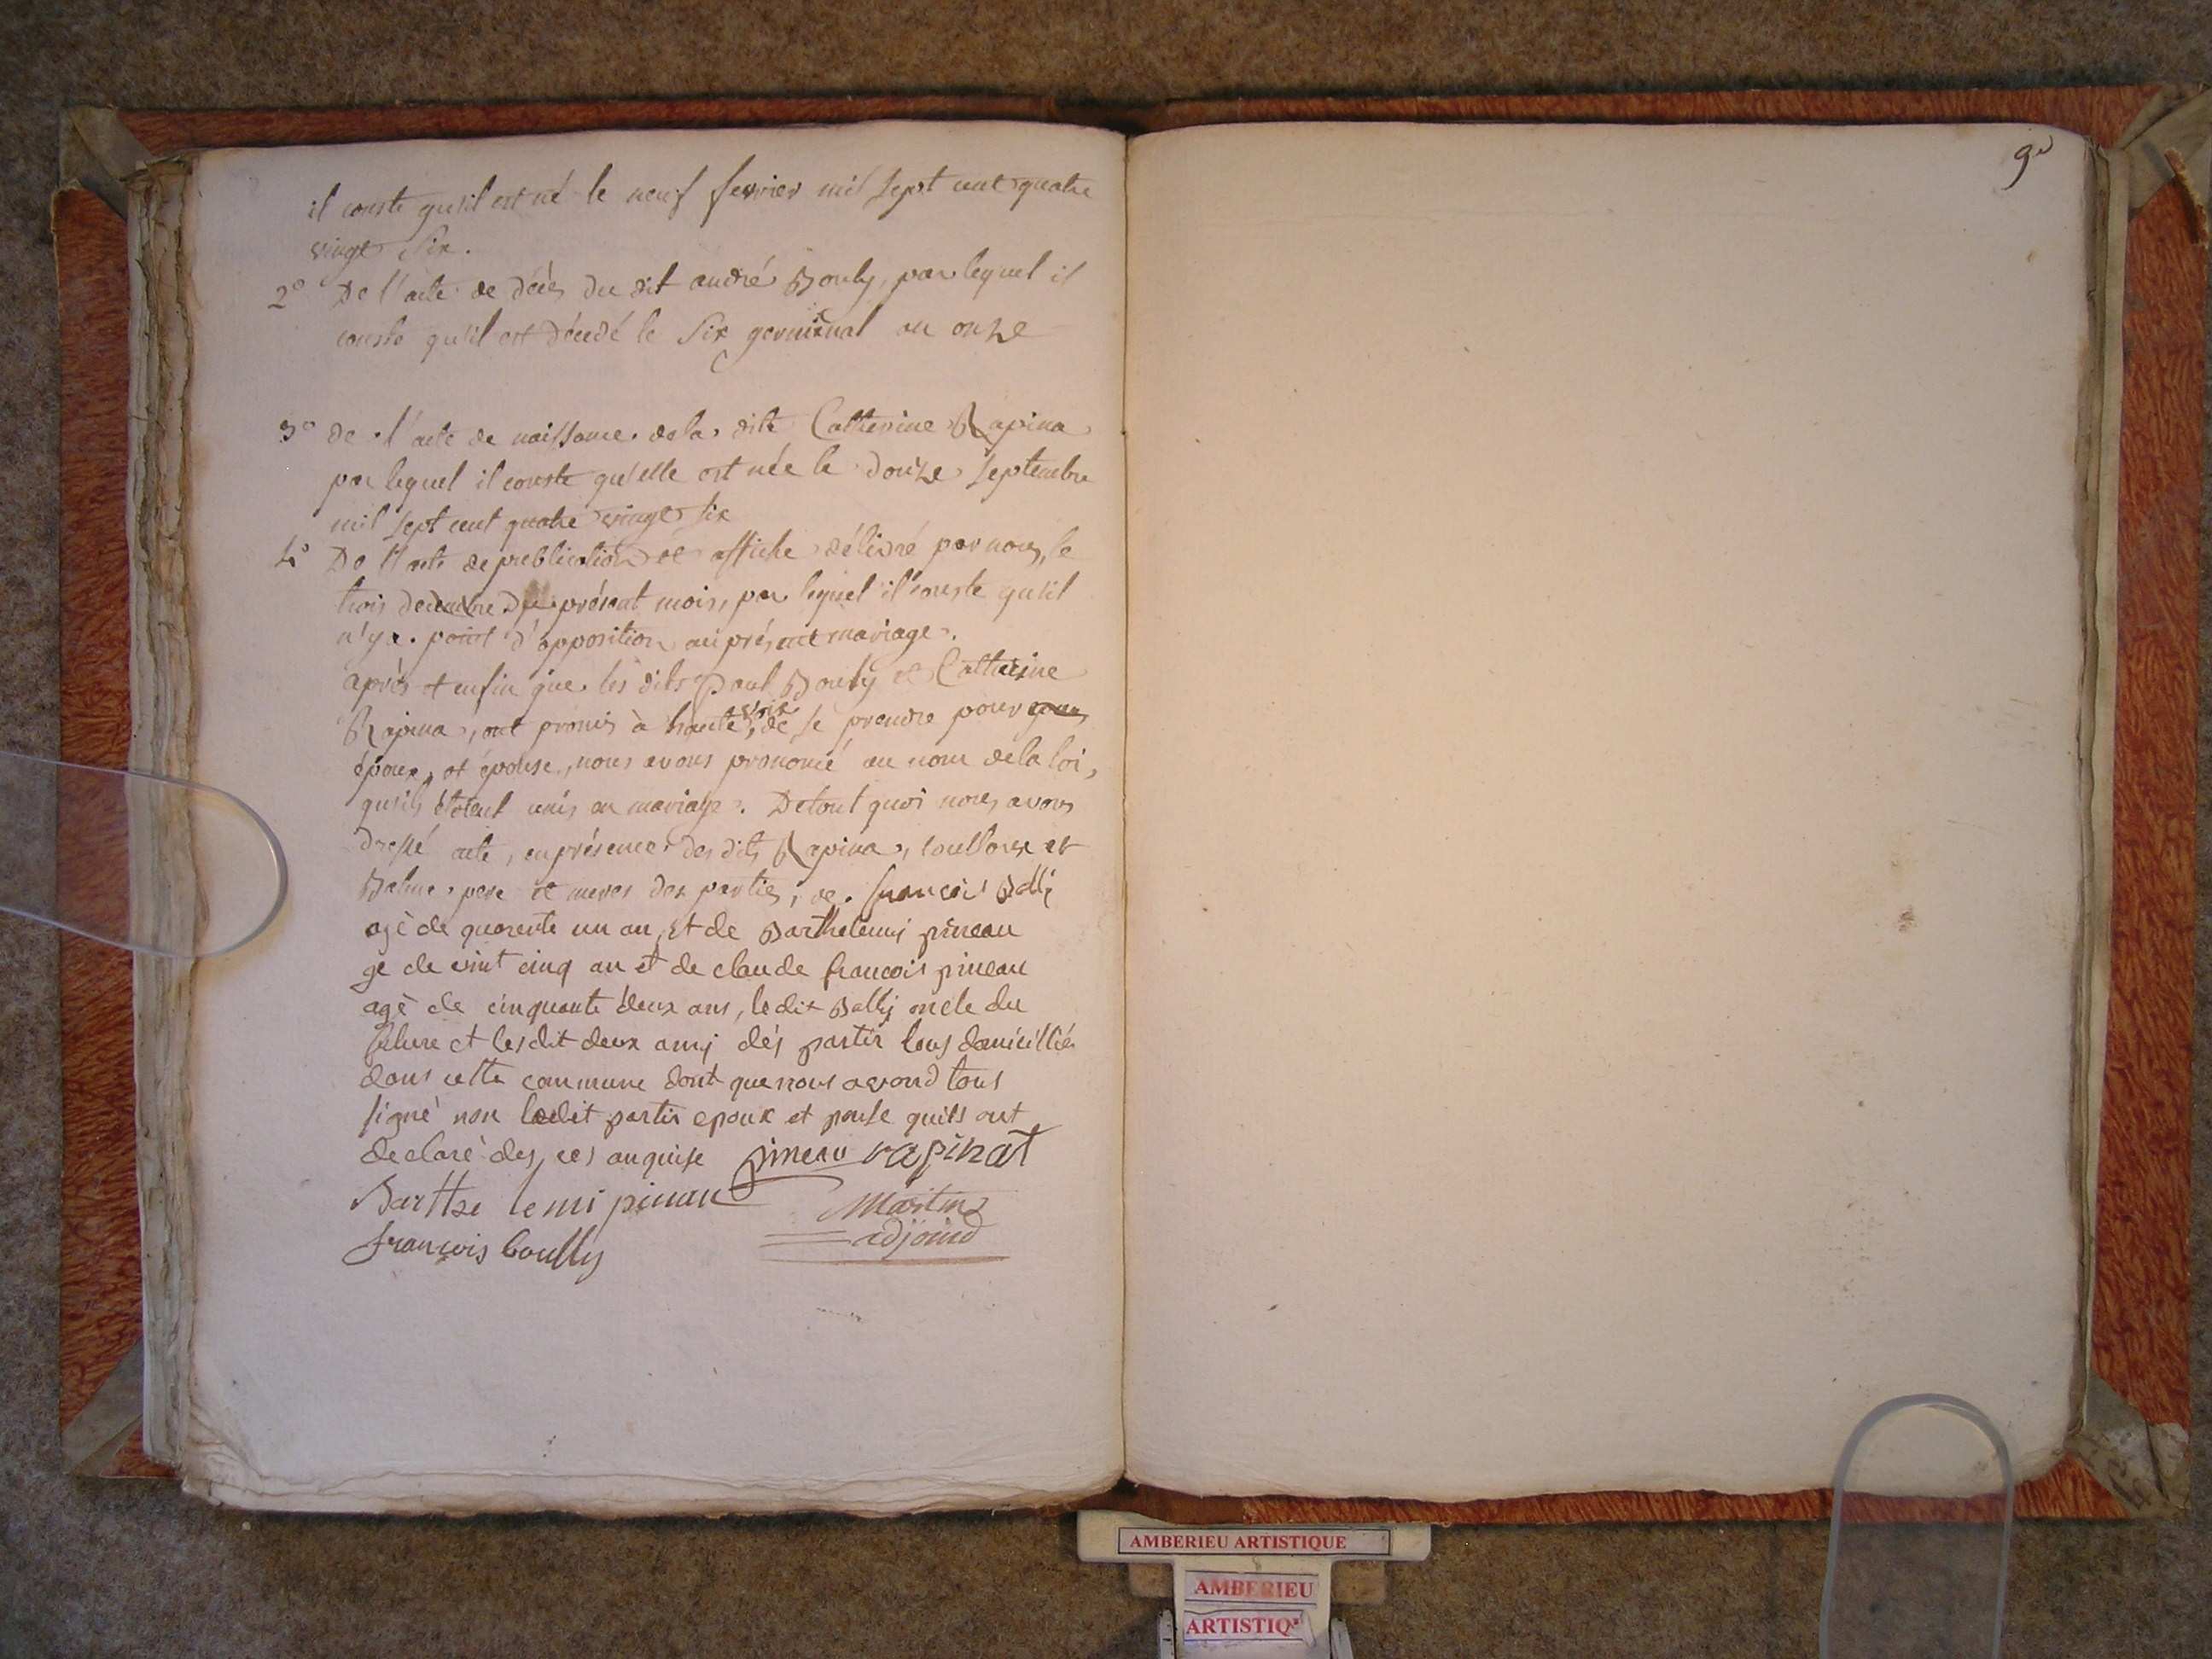 il conste qu'il est né le neuf fevrier mil sept cent quatre
vingt six.
2° De l'acte de décès du dit andré Bouly, par lequel il
conste qu'il est décédé le six germinal an onze
3° de l'acte de naissance de la dite Catherine Rapina
par lequel il conste qu'elle est née le douze septembre
mil sept cent quatre vingt six
4° De l'acte de publication et affiche délivré par nous, le
trois decembre du présent mois, par lequel il conste qu'il
n'y a point d'opposition au présent mariage.
après et enfin que les dits Paul Bouly et Catherine
Rapina, ont promis à haute voix de se prendre pour
époux et épouse, nous avons prononcé au nom de la loi,
qu'ils étoient unis en mariage. De tout quoi nous avons
dressé acte, en présence des dits Rapina, et
pere et meres des parties, de francois
agè de quarente un an, et de Barthelemy pineau
ge de vint cinq an et de claude francois pineau
agè de cinquante deux ans, le dit oncle du
future et lesdit deux amj dés partis tous domicillié
dans cette commune dont que nous avond tous
signé non ledit partis epoux et pouse quils ont
declaré des ces anquise pineau rapinat
Barthe lemi pinau Martin
adjoind
françois boully
9e
AMBERIEU ARTISTIQUE
AMBERIEU
ARTISTIQ